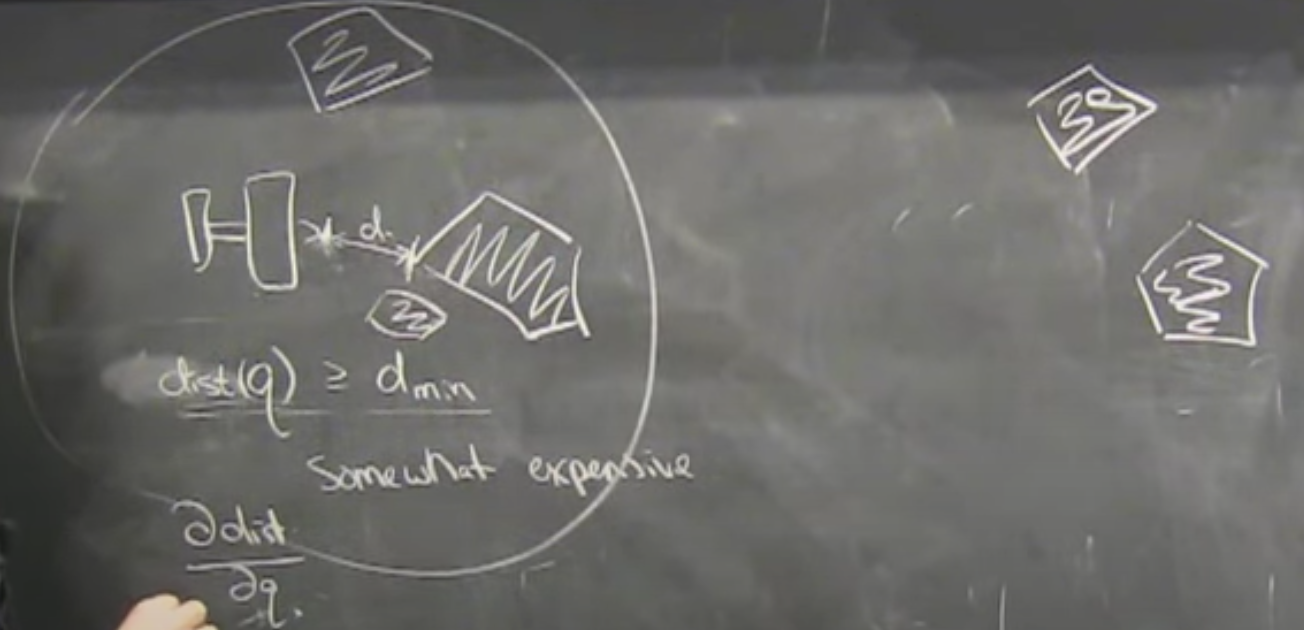 d.
dist(q) ≥ dmin
Somewhat expensive
∂dist
∂q.